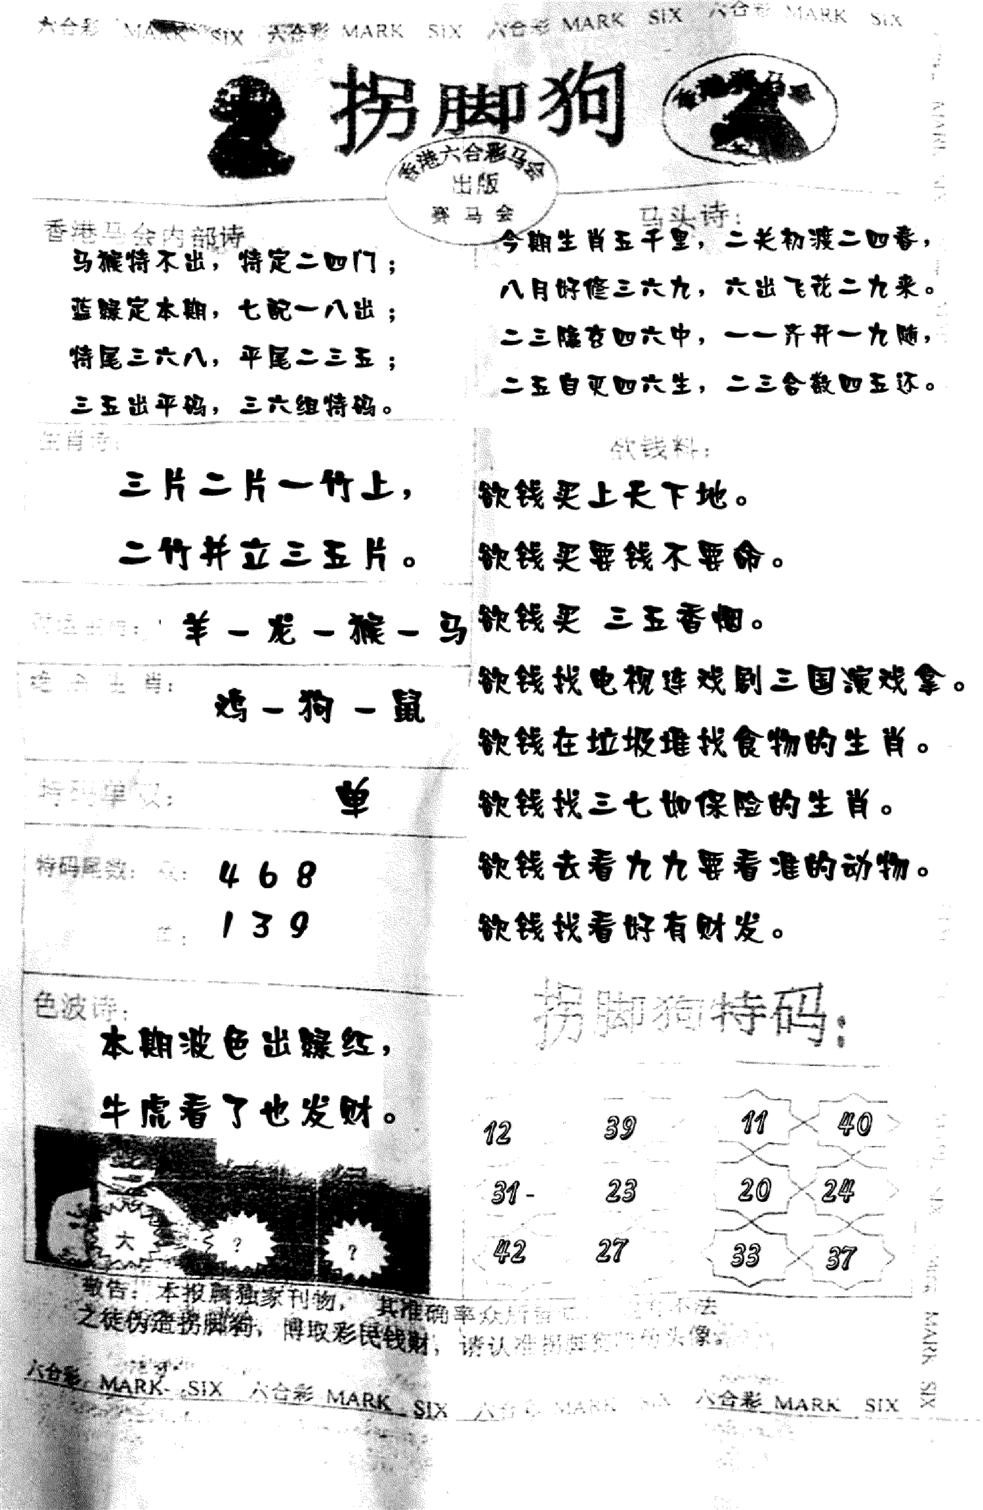 六合彩 MARK SIX 六合彩 MARK SIX 六合彩 MARK SIX 六合彩 MARK SIX
拐脚狗
香港赛马会
香港六合彩马会
出版
赛马会
香港马会内部诗
马猴特不出，特定二四门；
蓝绿定本期，七配一八出；
特尾三六八，平尾二三五；
三五出平码，三六组特码。
马头诗：
今期生肖五千里，二关初渡二四春，
八月好修三六九，六出飞花二九来。
二三隐玄四六中，一一齐开一九随，
二五自灭四六生，二三合数四五还。
生肖诗：
三片二片一竹上，
二竹并立三五片。
羊－龙－猴－马
绝杀生肖：
鸡－狗－鼠
特码单双：
单
特码尾数：双：
4 6 8
单：
1 3 9
色波诗：
本期波色出绿红，
牛虎看了也发财。
大 ？ ？
欲钱料：
欲钱买上天下地。
欲钱买要钱不要命。
欲钱买 三五香烟。
欲钱找电视连戏剧三国演戏拿。
欲钱在垃圾堆找食物的生肖。
欲钱找三七如保险的生肖。
欲钱去看九九要看准的动物。
欲钱找看好有财发。
拐脚狗特码：
12 39 11 40
31- 23 20 24
42 27 33 37
敬告：本报属独家刊物，其准确率众所
不法
之徒伪造拐脚狗，博取彩民钱财，请认准拐脚狗
头像。
六合彩 MARK SIX 六合彩 MARK SIX 六合彩 MARK SIX 六合彩 MARK SIX
MARK SIX
MARK SIX